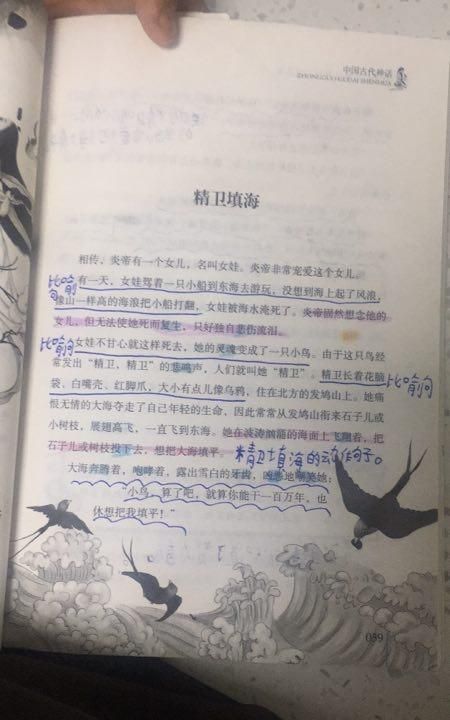 中国古代神话
ZHONGGUO GUDAI SHENHUA
精卫填海
相传，炎帝有一个女儿，名叫女娃。炎帝非常宠爱这个女儿。
比喻
有一天，女娃驾着一只小船到东海去游玩，没想到海上起了风浪，
像山一样高的海浪把小船打翻，女娃被海水淹死了。炎帝固然想念他的
女儿，但无法使她死而复生，只好独自悲伤流泪。
比喻
女娃不甘心就这样死去，她的灵魂变成了一只小鸟。由于这只鸟经
常发出“精卫，精卫”的悲鸣声，人们就叫她“精卫”。精卫长着花脑
比喻句
袋、白嘴壳、红脚爪，大小有点儿像乌鸦，住在北方的发鸠山上。她痛
恨无情的大海夺走了自己年轻的生命，因此常常从发鸠山衔来石子儿或
小树枝，展翅高飞，一直飞到东海。她在波涛汹涌的海面上飞翔着，把
石子儿或树枝投下去，想把大海填平。
精卫填海的动作句子。
大海奔腾着，咆哮着，露出雪白的牙齿，凶恶地嘲笑她：
“小鸟，算了吧，就算你能干一百万年，也
休想把我填平！”
039